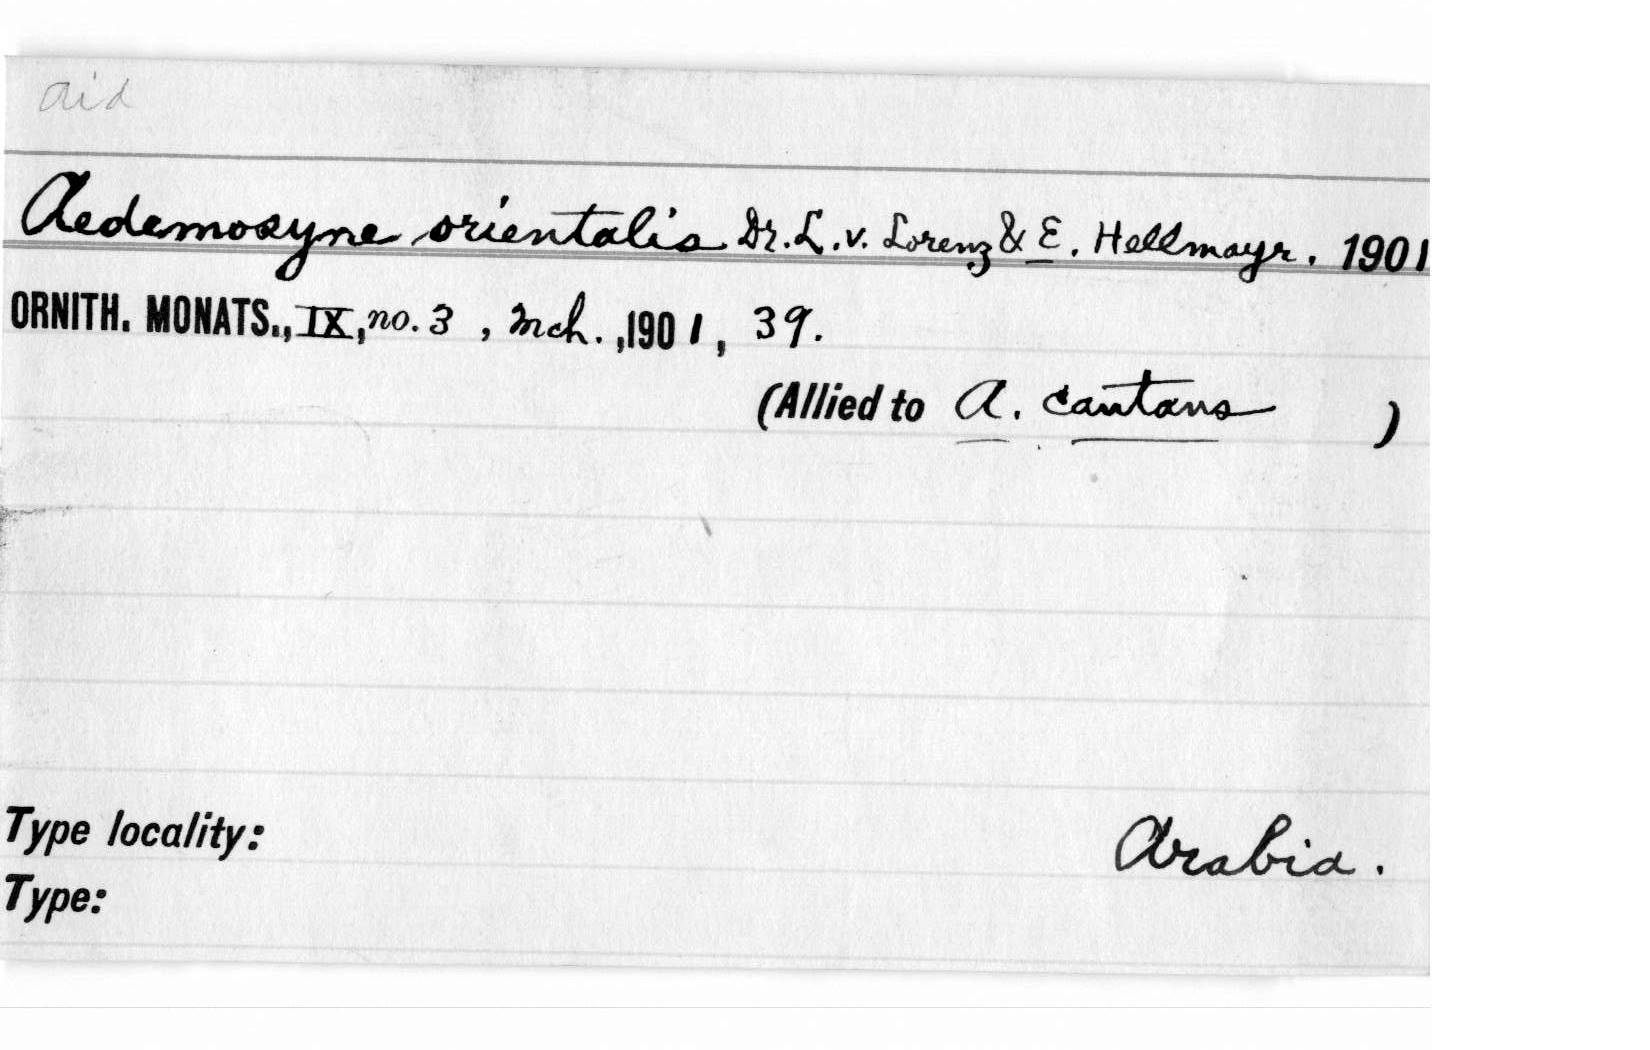 aid
Aedemosyne orientalis Dr. L. v. Lorenz & E. Hellmayr. 1901
ORNITH. MONATS., IX, no. 3 , Mch. ,1901 , 39.
(Allied to A. cantans )
Type locality: Arabia.
Type: